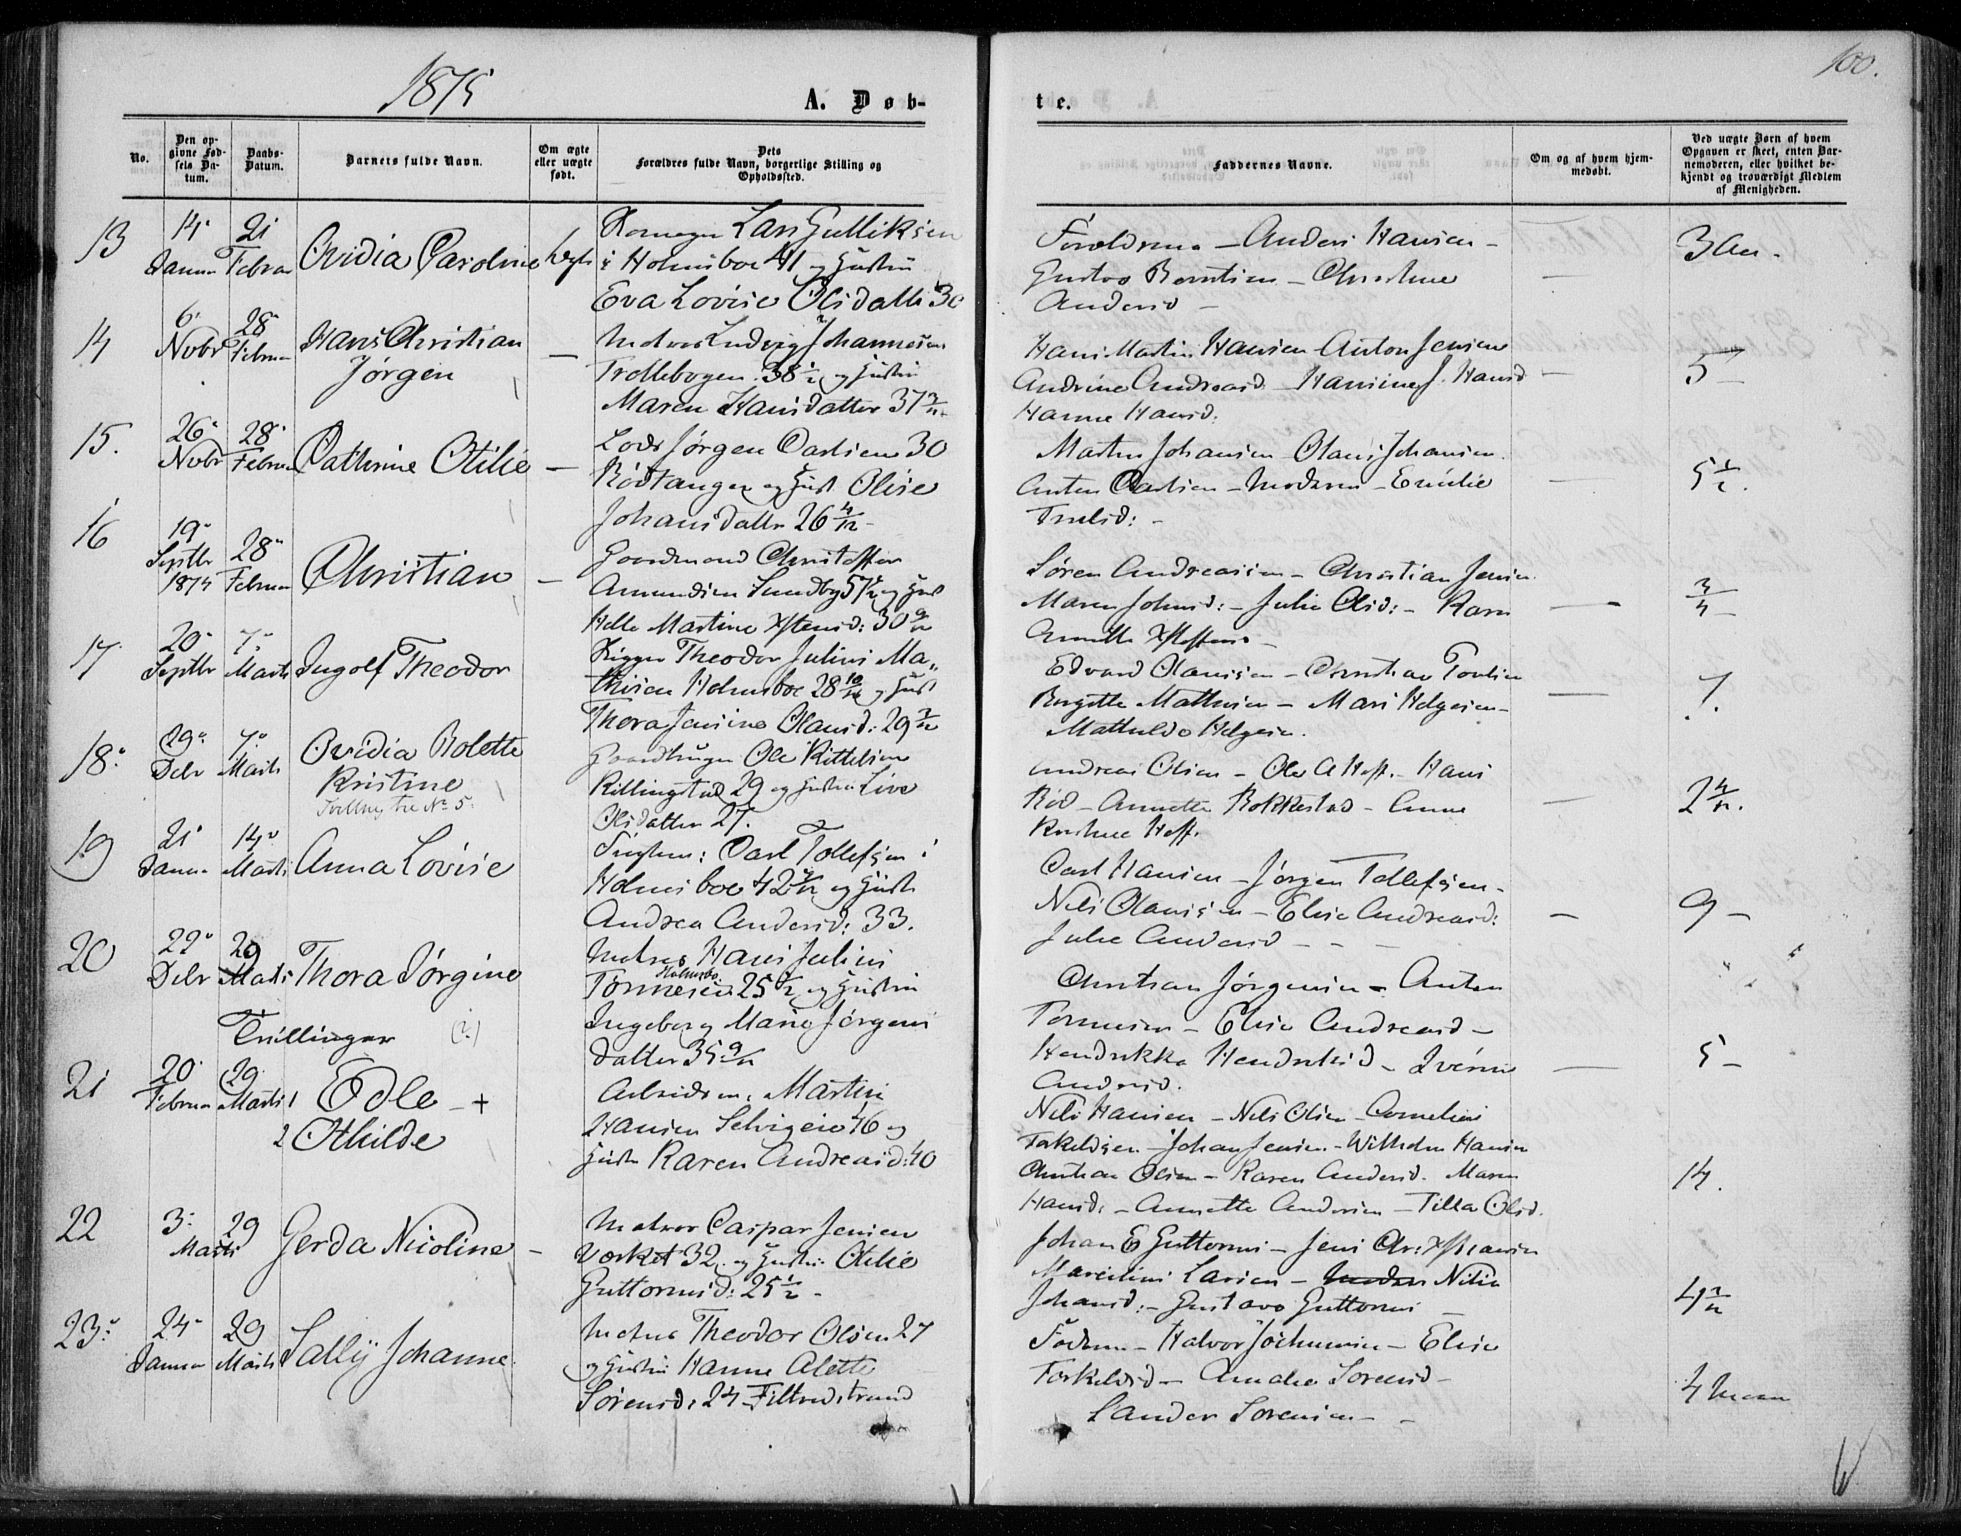 1875
100.
A. Døb-
te.
No.
Den op-
givne Fød-
sels Da-
tum.
Daabs-
Datum.
Barnets fulde Navn.
Om ægte
eller uægte
født.
Dets
Forældres fulde Navn, borgerlige Stilling og
Opholdssted.
Faddernes Navne.
Om og af hvem hjem-
medøbt.
Ved uægte Børn af hvem
Opgaven er skeet, enten Bar-
nemoderen, eller hvilket be-
kjendt og troværdigt Medlem
af Menigheden.
13
14
21
Januar Februar Ovidia Caroline
Lars Gulliksen
i Holmsboe 41 og Hustru
Eva Lovise Olsdatter 30
Forældrene - Anders Hansen -
Gustav Berntsen - Christine
Andersd -
14
6
28
Novbr Februar Hans Christian
Jørgen
Matros Ludvig Johannesen
Trollebogen 38 1/2 og Hustru
Maren Hansdatter 37
Hans Martin Hansen Anton Jensen
Andrine Andreasd Hansine J. Hansd
Hanne Hansd.
5 -
15.
26
28
Novbr Februar Cathrine Otilie -
Lods Jørgen Carlsen 30
Rødtangen og Hust Olise
Johansdattr 26 4/12 -
Martin Johansen Olaus Johansen
Anton Carlsen - Moderen - Emilie
Truelsd: -
5 1/2.
16
19
Septbr 28
1874 Februar Christian -
Gaardmand Christoffer
Amundsen Sundby og Hust
Helle Martine 30
Søren Andreassen - Christian Jensen
Maren Johnsd: - Julie Olsd: - Karen
3/4 -
17
20
7
Septbr Marts Ingolf Theodor
Theodor Julius Ma-
thisen Holmsboe 28 10/12 og Hust
Thora Jensine Olausd: 29
Edvard Olaussen - Christian Poulsen
Birgitte Mathisen - Mari Helgesen -
Mathilde Helgesen.
7.
18
29
7
Debr Marts
Ovidia Bolette
Kristine
Tvilling til No 5.
Gaardbruger Ole Kittelsen
Killingstad 29 og Hustru Live
Olsdatter 27.
Andreas Olsen - Ole A Hoff. - Hans
Rød - Annette Rokkestad - Anne
Kristine Hoff.
2 4/12.
19
21
14
Januar Marts Anna Lovise
Carl Tollefsen i
Holmsboe 42 og Hustr
Andrea Andersd: 33.
Carl Hansen - Jørgen Tollefsen -
Nils Olaussen - Elise Andreasd:
Julie Andersd - -
9 -
20
22
29
Debr Marts Thora Jørgine
Matros Hans Julius
Holmsbo
Tønnesen 25 og Hustru
Ingeborg Marie Jørgens
datter 35 9/12
Christian Jørgensen - Anton
Tønnesen - Elise Andreasd -
Hendrikke Hendriksd -
Andersd.
5 -
Trillinger (?)
21
20
29
Februar Marts 1 Edle - +
2 Othilde
Arbeidsm: Martin
Hansen Selvigeie 46 og
Hustr Karen Andreasd: 40
Nils Hansen - Nils Olsen - Cornelius
Takeldsen - Johan Jensen - Wilhelm Hansen
Christian Olsen - Karen Andersd. Maren
Hansd: - Annette Andersen - Tilla Olsd.
14.
22
3
29
Marts
Gerda Nicoline -
Matros Caspar Jensen
Værket 32 og Hustru Otilie
Guttormsd: 25 1/2 -
Johan E Guttorms - Jens Chr:
Larsen - Nilia
Johansd: - Gustava Guttorms -
4
23
24
29
Januar Marts Sally Johanne.
Matros Theodor Olsen 27
og Hustru Hanne Alette
Sørensd: 24 Filtvedstrand
Faderen - Halvor Jochumsen - Elise
Torkildsd - Amalie Sørensd -
Sander Sørensen -
4